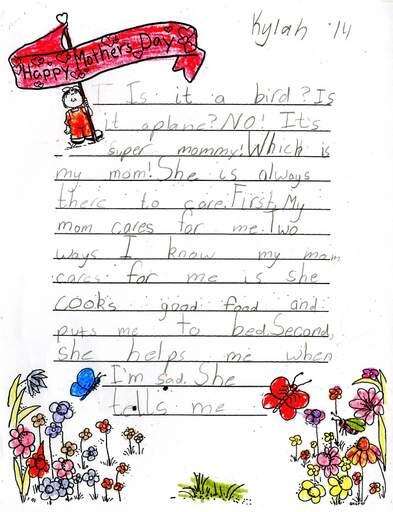 Kylah '14
Happy Mothers Day
Is it a bird? Is
it aplane? NO! It's
super mommy! Which is
my mom! She is always
there to care. First, My
mom cares for me. Two
ways I know my mom
cares for me is she
cooks good food and
puts me to bed. Second,
she helps me when
I'm sad. She
tells me